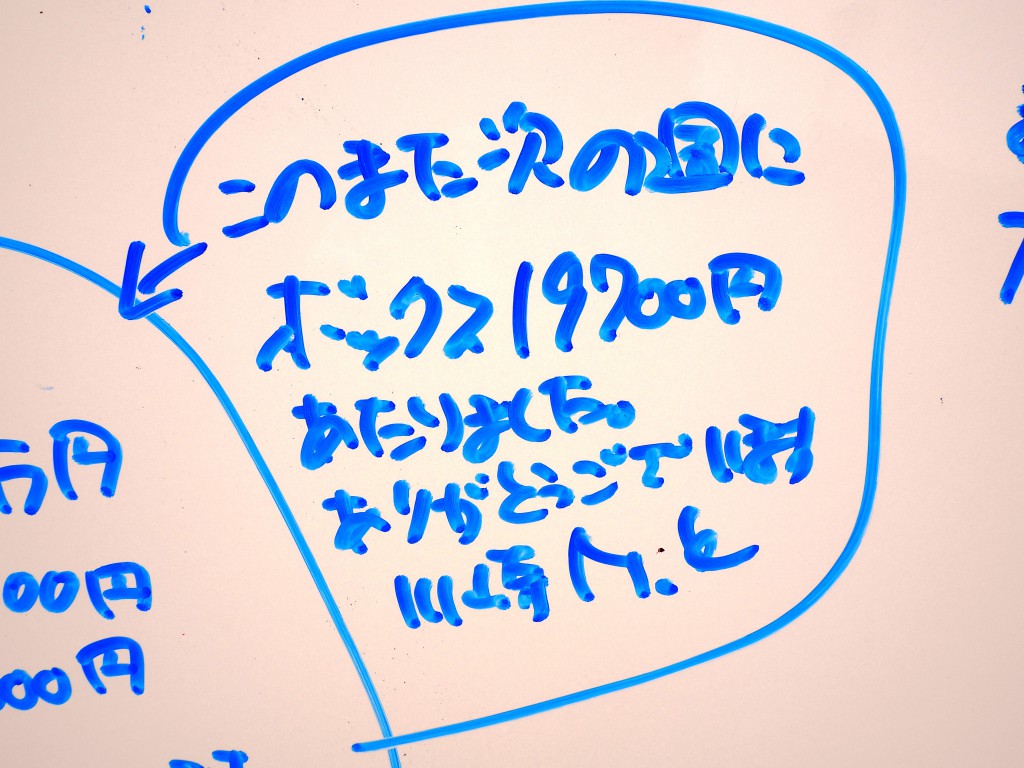 このまた次の園に
ボックス19700円
あたりました。
ありがとうございます
川崎 M.を
万円
00円
00円